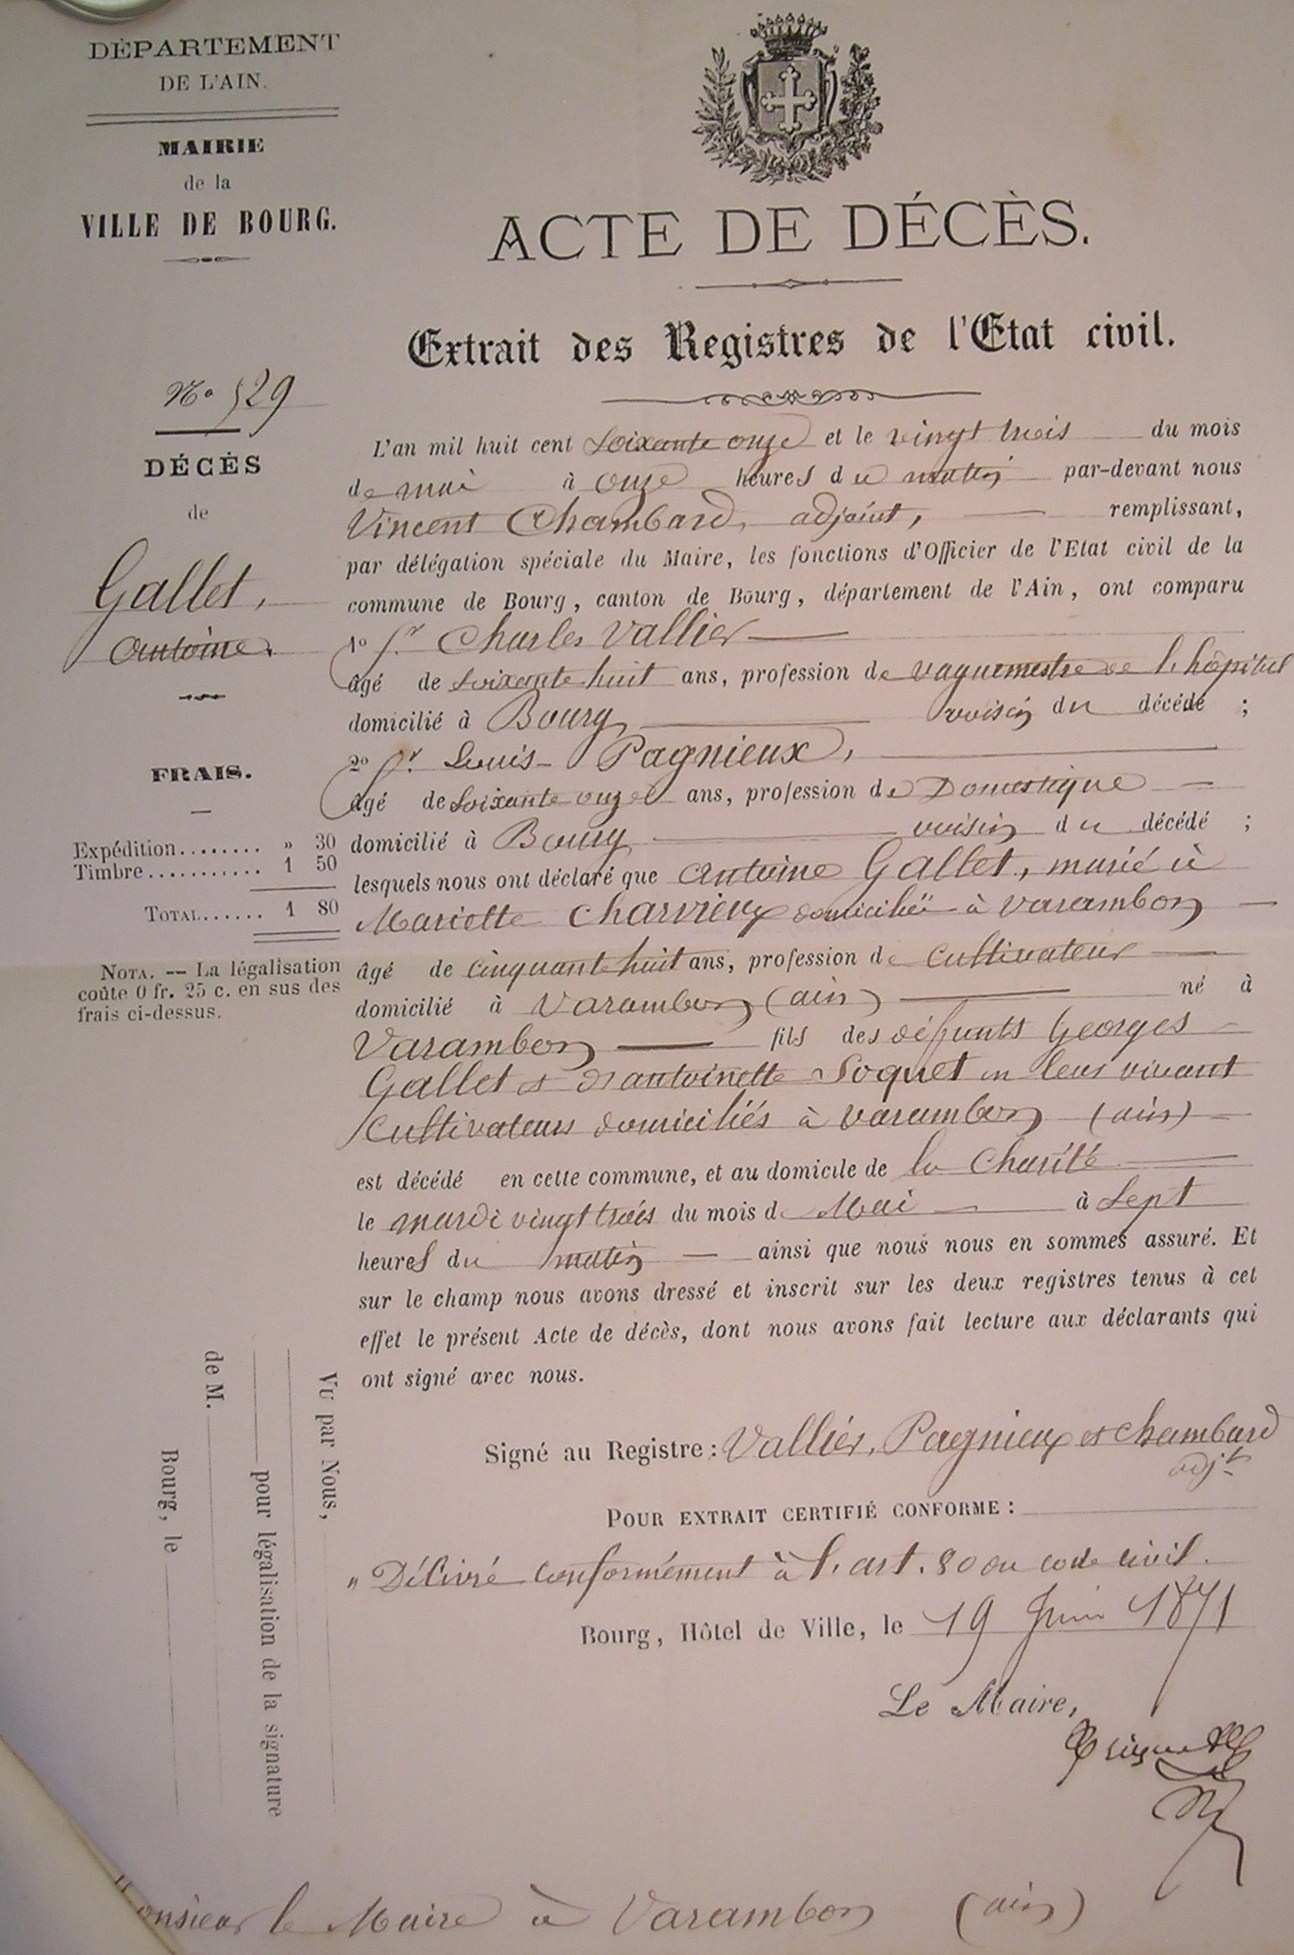 DÉPARTEMENT
DE L'AIN.
MAIRIE
de la
VILLE DE BOURG.
ACTE DE DÉCÈS.
Extrait des Registres de l'Etat civil.
No 529
DÉCÈS
de
Gallet,
Antoine.
FRAIS.
Expédition........ » 30
Timbre........... 1 50
TOTAL...... 1 80
NOTA. -- La légalisation
coûte 0 fr. 25 c. en sus des
frais ci-dessus.
L'an mil huit cent soixante onze et le vingt trois du mois
de mai à onze heures du matin par-devant nous
Vincent Chambard, adjoint, remplissant,
par délégation spéciale du Maire, les fonctions d'Officier de l'Etat civil de la
commune de Bourg, canton de Bourg, département de l'Ain, ont comparu
1o Sr. Charles Vallier
âgé de soixante huit ans, profession de vaguemestre de l'hôpital
domicilié à Bourg voisin du décédé ;
2o Sr. Louis Pagnieux,
âgé de soixante onze ans, profession de Domestique
domicilié à Bourg voisin du décédé ;
lesquels nous ont déclaré que Antoine Gallet, marié à
Mariette Charvieux domiciliée à Varambon
âgé de cinquante huit ans, profession de cultivateur
domicilié à Varambon (ain) né à
Varambon fils des défunts Georges
Gallet et d'antoinette Soquet en leur vivant
Cultivateurs domiciliés à Varambon (ain)
est décédé en cette commune, et au domicile de la Charité
le mardi vingt trois du mois de Mai à Sept
heures du matin ainsi que nous nous en sommes assuré. Et
sur le champ nous avons dressé et inscrit sur les deux registres tenus à cet
effet le présent Acte de décès, dont nous avons fait lecture aux déclarants qui
ont signé avec nous.
Signé au Registre : Vallier, Pagnieux et Chambard
adjt
POUR EXTRAIT CERTIFIÉ CONFORME :
" Délivré conformément à l'art. 80 du code civil.
Bourg, Hôtel de Ville, le 19 Juin 1871
Le Maire,
VU par Nous,
pour légalisation de la signature
de M.
Bourg, le
onsieur le Maire à Varambon (ain)